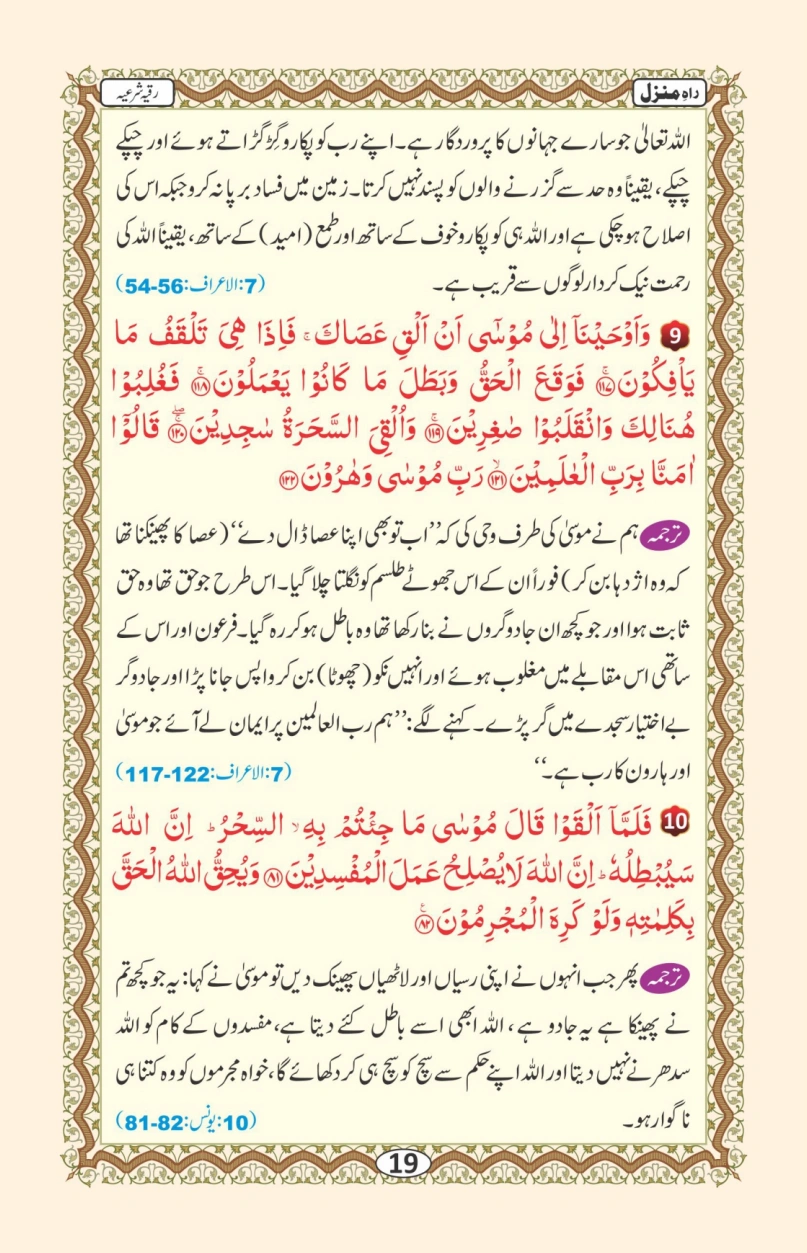 راہِ منزل
رقیہ شرعیہ
اللہ تعالیٰ جو سارے جہانوں کا پروردگار ہے۔ اپنے رب کو پکارو گِڑگڑاتے ہوئے اور چپکے
چپکے، یقیناً وہ حد سے گزرنے والوں کو پسند نہیں کرتا۔ زمین میں فساد برپا نہ کرو جبکہ اس کی
اصلاح ہو چکی ہے اور اللہ ہی کو پکارو خوف کے ساتھ اور طمع (امید) کے ساتھ، یقیناً اللہ کی
رحمت نیک کردار لوگوں سے قریب ہے۔ (7:الاعراف:56-54)
9 وَاَوْحَيْنَآ اِلٰى مُوْسٰٓى اَنْ اَلْقِ عَصَاكَ ۚ فَاِذَا هِىَ تَلْقَفُ مَا
يَاْفِكُوْنَ ۚ﴿۱۱۷﴾ فَوَقَعَ الْحَقُّ وَبَطَلَ مَا كَانُوْا يَعْمَلُوْنَ ۚ﴿۱۱۸﴾ فَغُلِبُوْا
هُنَالِكَ وَانْقَلَبُوْا صٰغِرِيْنَ ۚ﴿۱۱۹﴾ وَاُلْقِىَ السَّحَرَةُ سٰجِدِيْنَ ۚۖ﴿۱۲۰﴾ قَالُوْٓا
اٰمَنَّا بِرَبِّ الْعٰلَمِيْنَ ۙ﴿۱۲۱﴾ رَبِّ مُوْسٰى وَهٰرُوْنَ ﴿۱۲۲﴾
ترجمہ ہم نے موسیٰ کی طرف وحی کی کہ ’’اب تو بھی اپنا عصا ڈال دے‘‘ (عصا کا پھینکنا تھا
کہ وہ اژدہا بن کر) فوراً ان کے اس جھوٹے طلسم کو نگلتا چلا گیا۔ اس طرح جو حق تھا وہ حق
ثابت ہوا اور جو کچھ ان جادوگروں نے بنا رکھا تھا وہ باطل ہو کر رہ گیا۔ فرعون اور اس کے
ساتھی اس مقابلے میں مغلوب ہوئے اور انہیں نکو (چھوٹا) بن کر واپس جانا پڑا اور جادوگر
بے اختیار سجدے میں گر پڑے۔ کہنے لگے: ’’ہم رب العالمین پر ایمان لے آئے جو موسیٰ
اور ہارون کا رب ہے۔‘‘ (7:الاعراف:122-117)
10 فَلَمَّآ اَلْقَوْا قَالَ مُوْسٰى مَا جِئْتُمْ بِهِ ۙ السِّحْرُ ؕ اِنَّ اللّٰهَ
سَيُبْطِلُهٗ ؕ اِنَّ اللّٰهَ لَا يُصْلِحُ عَمَلَ الْمُفْسِدِيْنَ ﴿۸۱﴾ وَيُحِقُّ اللّٰهُ الْحَقَّ
بِكَلِمٰتِهٖ وَلَوْ كَرِهَ الْمُجْرِمُوْنَ ۚ﴿۸۲﴾
ترجمہ پھر جب انہوں نے اپنی رسیاں اور لاٹھیاں پھینک دیں تو موسیٰ نے کہا: یہ جو کچھ تم
نے پھینکا ہے یہ جادو ہے، اللہ ابھی اسے باطل کئے دیتا ہے، مفسدوں کے کام کو اللہ
سدھرنے نہیں دیتا اور اللہ اپنے حکم سے سچ کو سچ ہی کر دکھائے گا، خواہ مجرموں کو وہ کتنا ہی
ناگوار ہو۔ (10:یونس:82-81)
19